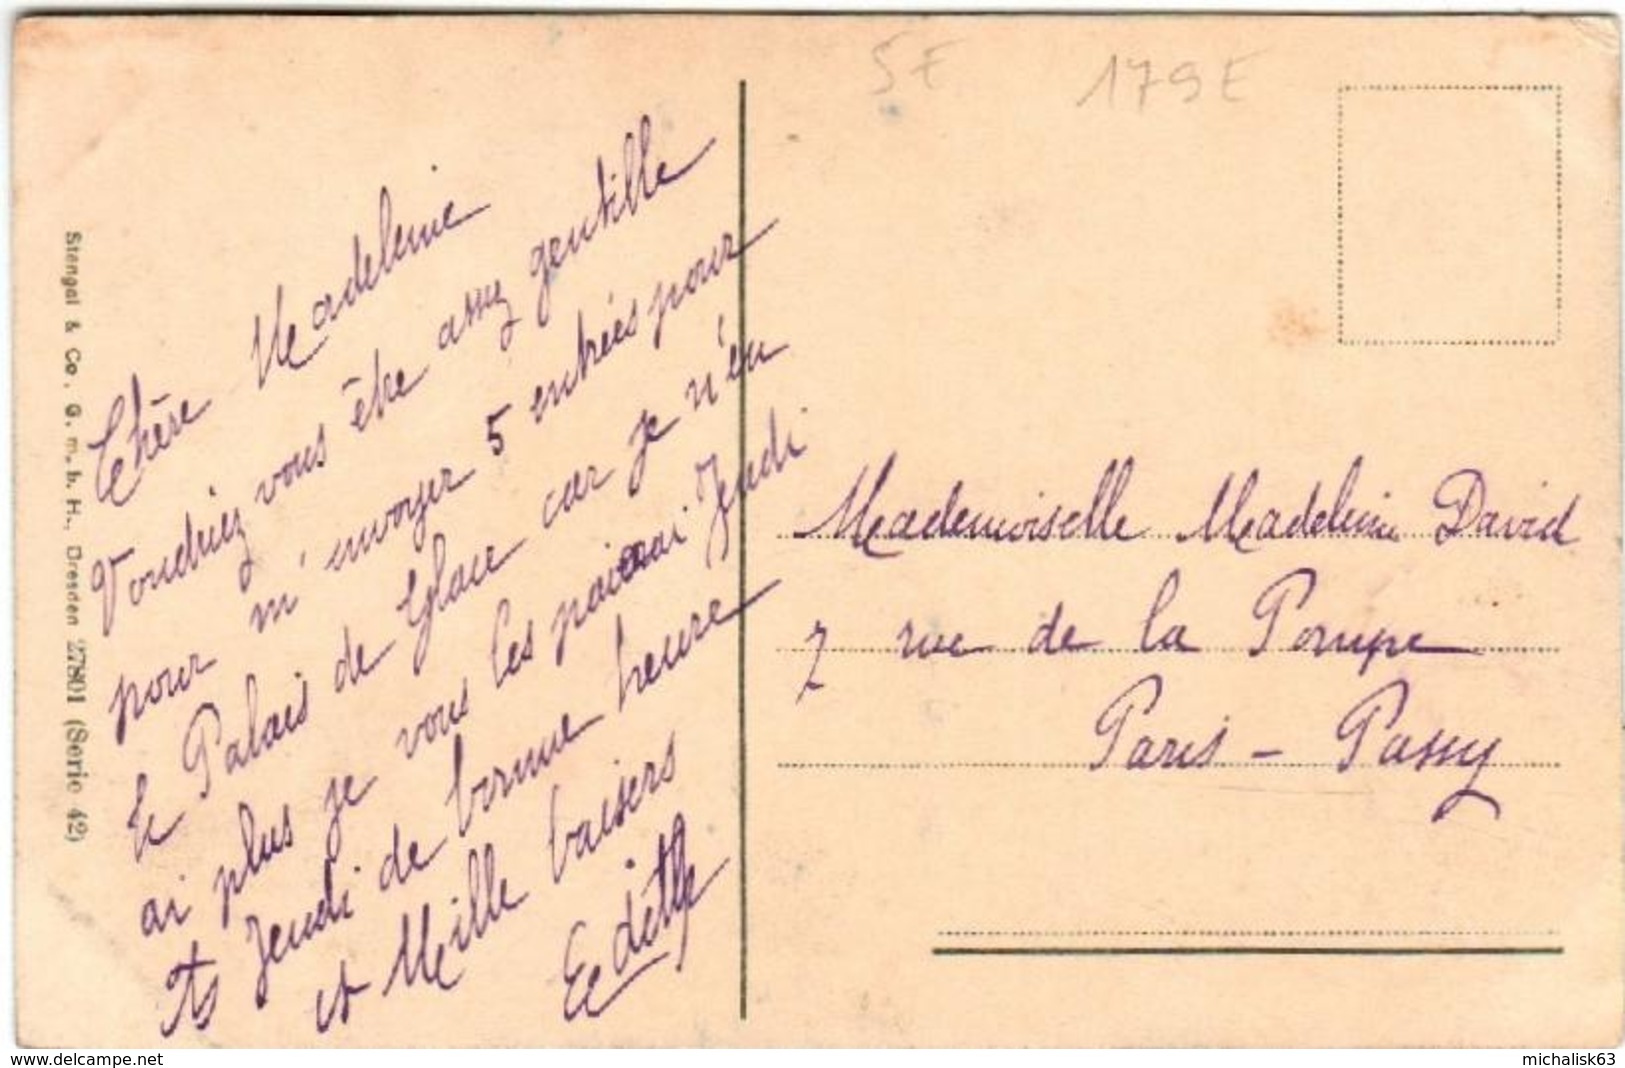 5 E 179 E
Stengel & Co., G. m. b. H., Dresden 27801 (Serie 42)
Chère Madeleine
Voudriez vous être assez gentille
pour m'envoyer 5 entrées pour
le Palais de Glace car je n'en
ai plus je vous les paierai Jeudi
A Jeudi de bonne heure
et Mille baisers
Edith
Mademoiselle Madeleine David
7 rue de la Pompe
Paris - Passy
www.delcampe.net
michalisk63